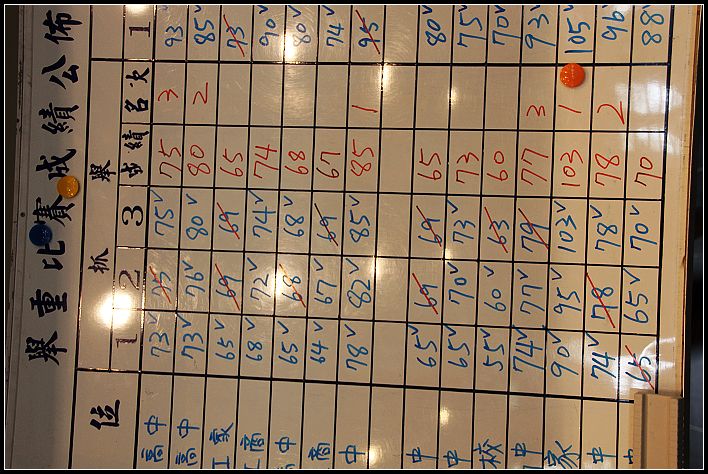 舉重比賽成績公佈
抓舉
位 1 2 3 成績 名次 1
高中 73✓ 75 75✓ 75 3 93✓
高中 73✓ 76✓ 80✓ 80 2 85✓
工家 65✓ 69 69 65 75
工商 68✓ 72✓ 74✓ 74 90✓
中 65✓ 68 68✓ 68 80✓
商 64✓ 67✓ 69 67 74✓
中 78✓ 82✓ 85✓ 85 1 95
中 65✓ 69 69 65 80✓
中 65✓ 70✓ 73✓ 73 75✓
校 55✓ 60✓ 63 60 70✓
中 74✓ 77✓ 79 77 3 93✓
家 90✓ 95✓ 103✓ 103 1 105✓
中 74✓ 78 78✓ 78 2 96✓
65 65✓ 70✓ 70 88✓